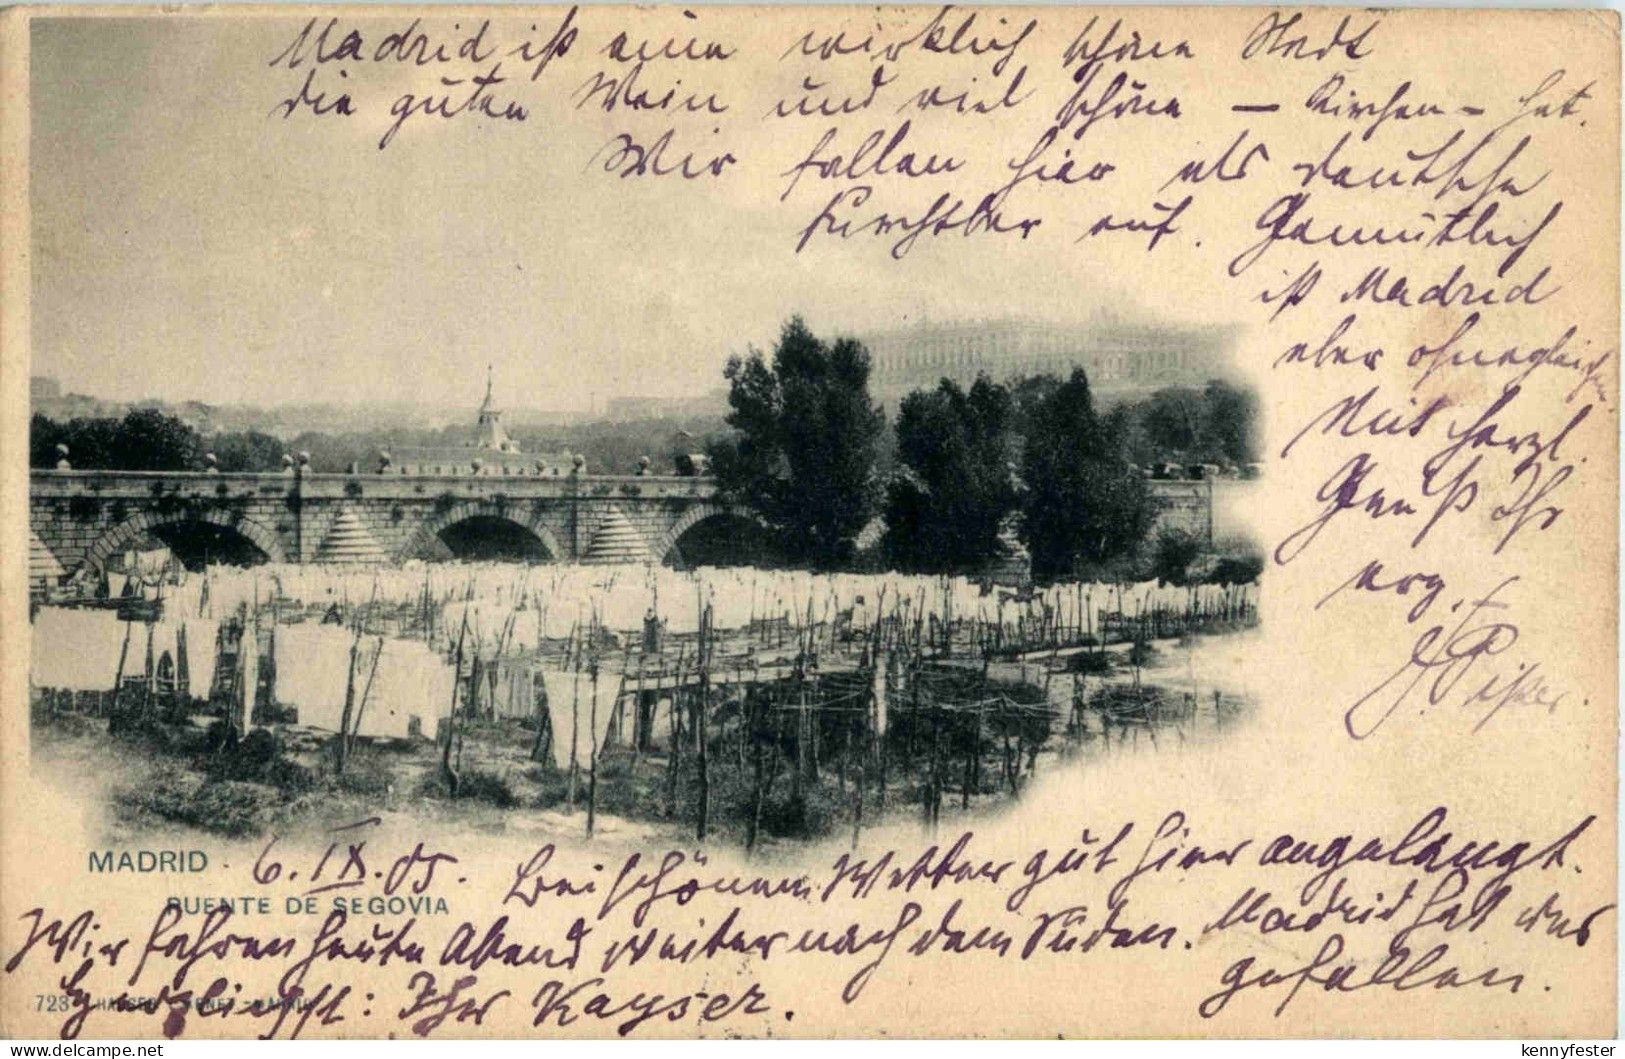 Madrid ist eine wirklich schöne Stadt
die guten Wein und viel schöne – Kirchen – hat.
Wir fallen hier als deutsche
furchtbar auf. Gemütlich
ist Madrid
aber ohnegleichen.
Mit herzl.
Gruß Ihr
erg.
MADRID 6. IX. 05. Bei schönem Wetter gut hier angelangt.
PUENTE DE SEGOVIA
Wir fahren heute Abend weiter nach dem Süden. Madrid hat uns
gefallen.
723 HAUSER Y MENET.-MADRID
Herzlichst: Ihr Kayser.
kennyfester